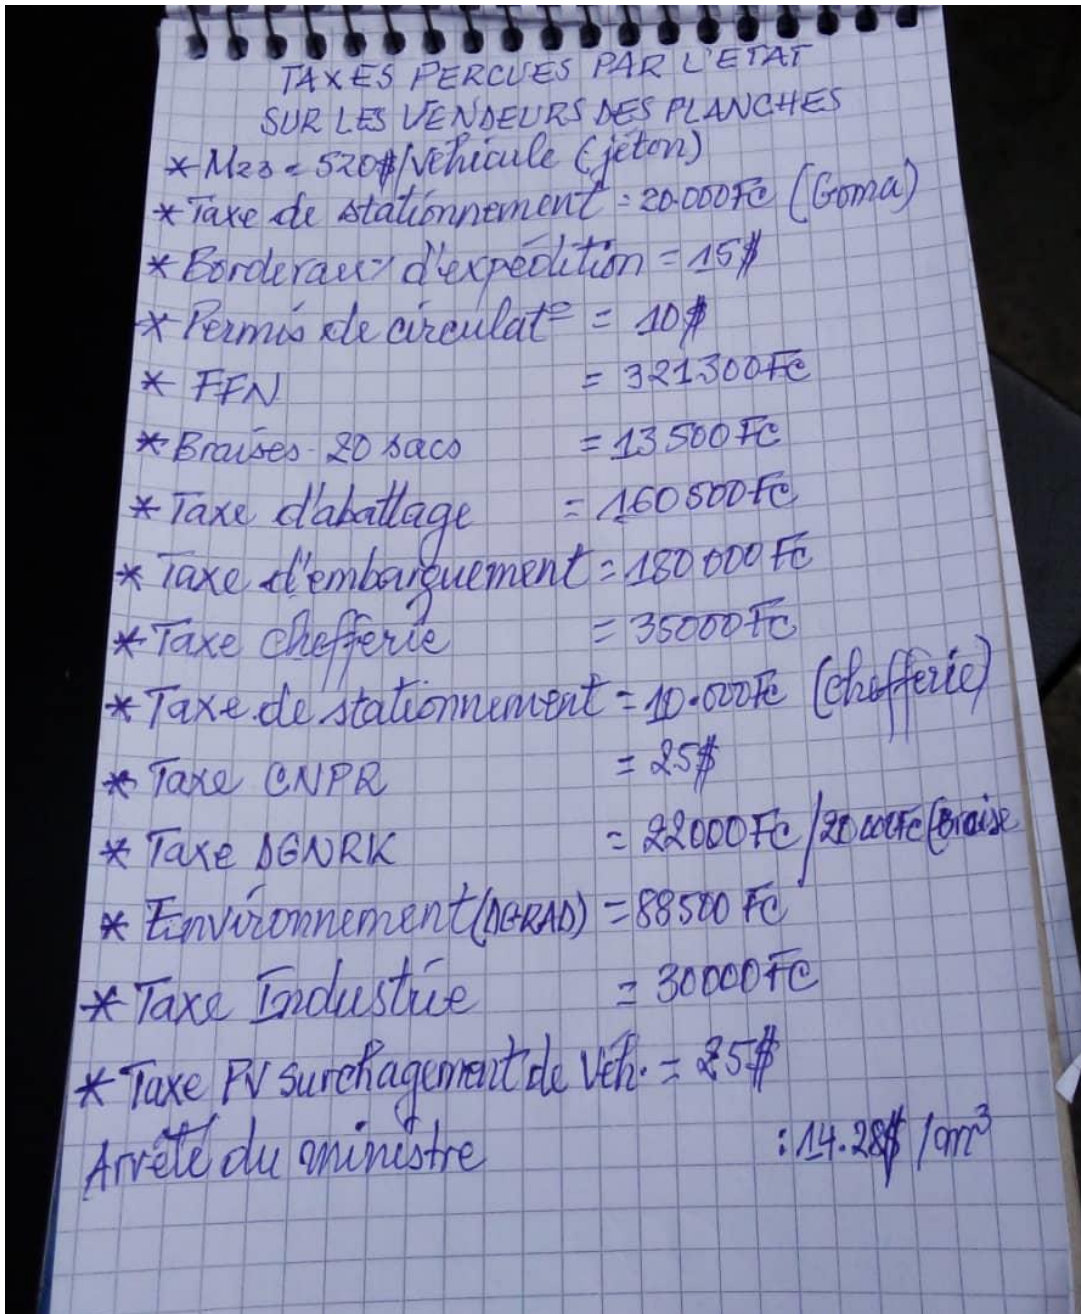 TAXES PERCUES PAR L'ETAT
SUR LES VENDEURS DES PLANCHES
* M23 = 520$/Véhicule (jéton)
* Taxe de stationnement = 20.000Fc (Goma)
* Borderaux d'expédition = 15$
* Permis de circulat° = 10$
* FFN = 321300Fc
* Braises 20 sacs = 13500Fc
* Taxe d'abattage = 160500Fc
* Taxe d'embarquement = 180000Fc
* Taxe chefferie = 35000Fc
* Taxe de stationnement = 10.000Fc (Chefferie)
* Taxe CNPR = 25$
* Taxe DGNRK = 22000Fc/20000Fc(Braise
* Environnement(DGRAD) = 88500 Fc
* Taxe Industrie = 30000Fc
* Taxe PV surchagement de Véh. = 25$
Arrêté du ministre : 14.28$/m³